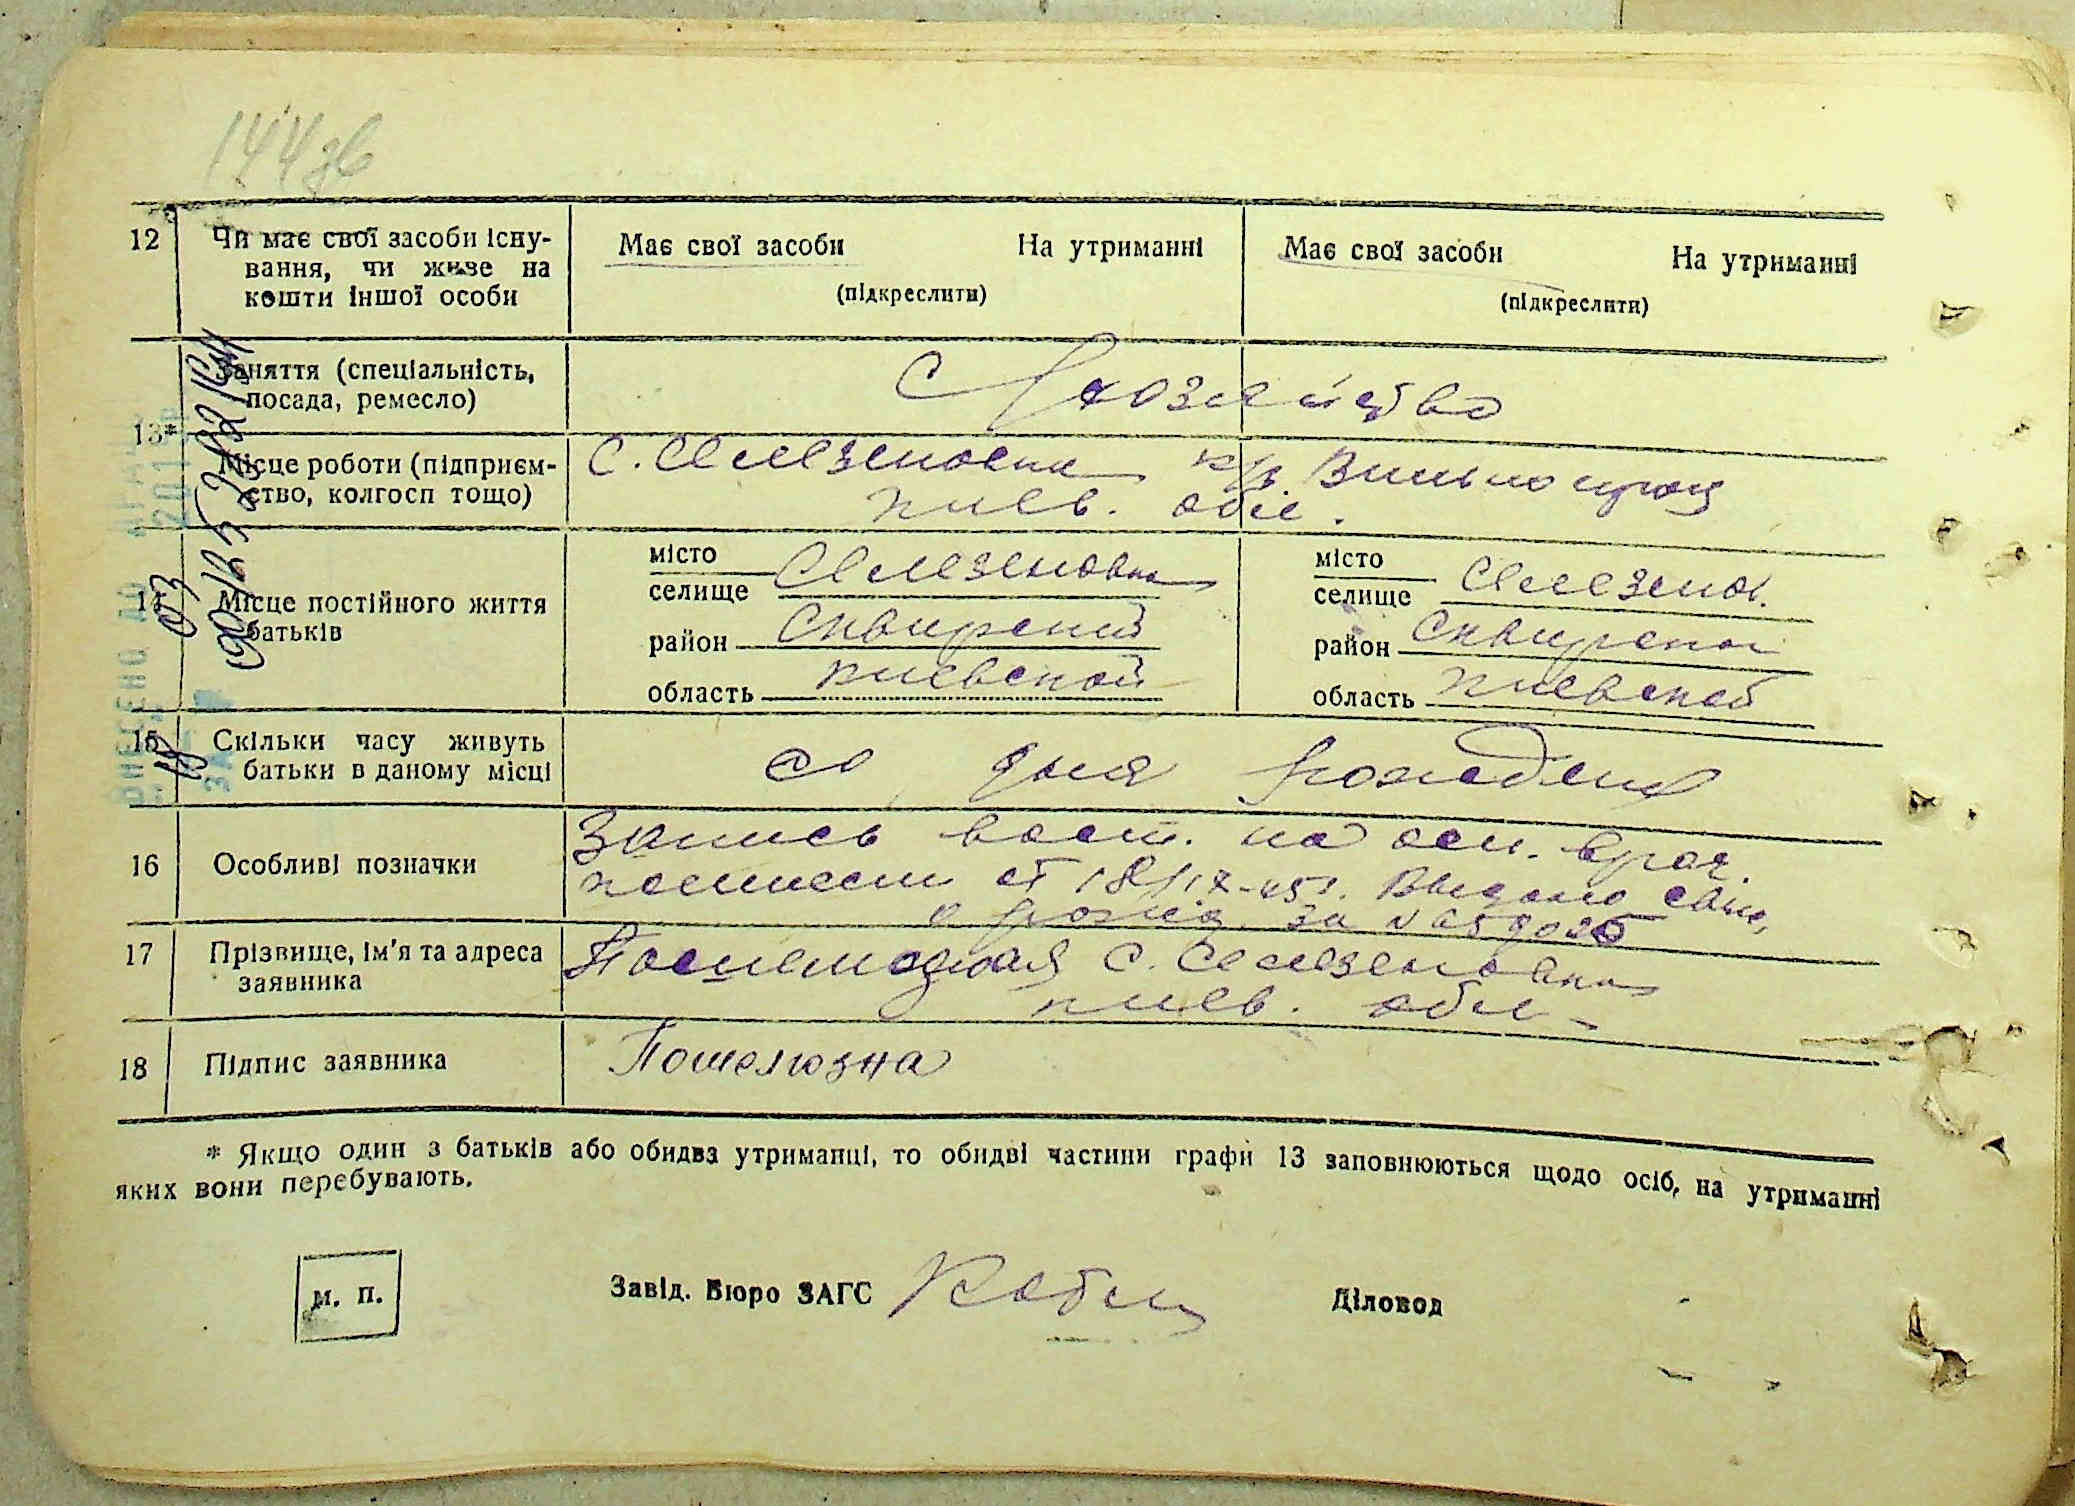 144 зв
12 Чи має свої засоби існування, чи живе на кошти іншої особи
Має свої засоби На утриманні
(підкреслити)
Має свої засоби На утриманні
(підкреслити)
13* Заняття (спеціальність,
посада, ремесло)
С/хозяйство
Місце роботи (підприєм-
ство, колгосп тощо)
с. Селезеновка к/з
киев. обл.
14 Місце постійного життя
батьків
місто
селище Селезеновка
район Сквирский
область киевской
місто
селище Селезенов.
район Сквирской
область киевской
15 Скільки часу живуть
батьки в даному місці
со дня рождения
16 Особливі позначки
Запись восст. на осн. врач.
от Выдано свид.
о рожд. за №
17 Прізвище, ім'я та адреса
заявника
с. Селезеновка
киев. обл.
18 Підпис заявника
Пошелюзна
* Якщо один з батьків або обидва утриманці, то обидві частини графи 13 заповнюються щодо осіб, на утриманні
яких вони перебувають.
м. п.
Завід. Бюро ЗАГС
Діловод